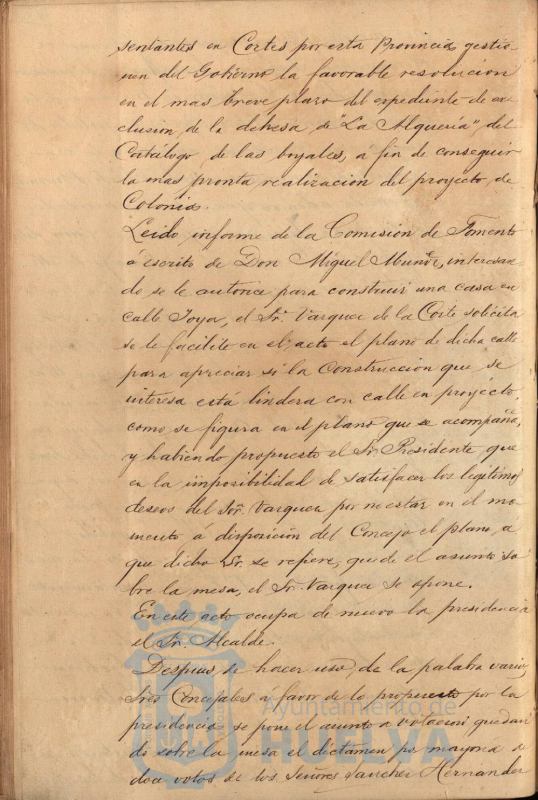 sentantes en Cortes por esta Provincia, gestio-
nen del Gobierno la favorable resolucion
en el mas breve plazo del expediente de ex-
clusion de la dehesa de "La Alqueria" del
Catálogo de las boyales, á fin de conseguir
la mas pronta realizacion del proyecto de
Colonia.
Leido informe de la Comision de Fomento
á escrito de Don Miguel Muñóz, interesan-
do se le autorice para construir una casa en
calle Joya, el Sr. Vazquez de la Corte solicita
se le facilite en el acto el plano de dicha calle
para apreciar si la construccion que se
interesa está lindera con calle en proyecto,
como se figura en el plano que se acompaña,
y habiendo propuesto el Sr. Presidente que
en la imposibilidad de satisfacer los legitimos
deseos del Sor. Vazquez por no estar en el mo-
mento á disposicion del Concejo el plano, a
que dicho Sr. se refiere, quede el asunto so-
bre la mesa, el Sr. Vazquez se opone.
En este acto ocupa de nuevo la presidencia
el Sr. Alcalde.
Despues de hacer uso, de la palabra varios
Sres. Concejales á favor de lo propuesto por la
presidencia se pone el asunto a votacion quedan-
do sobre la mesa el dictamen por mayoria de
doce votos de los Señores Sanchez Hernandez
Ayuntamiento de
HUELVA